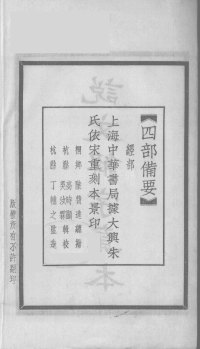 【四部備要】
經部
上海中華書局據大興朱
氏依宋重刻本景印
桐鄉 陸費逵 總勘
杭縣 高時顯 輯校
杭縣 吳汝霖 輯校
杭縣 丁輔之 監造
版權所有不許翻印